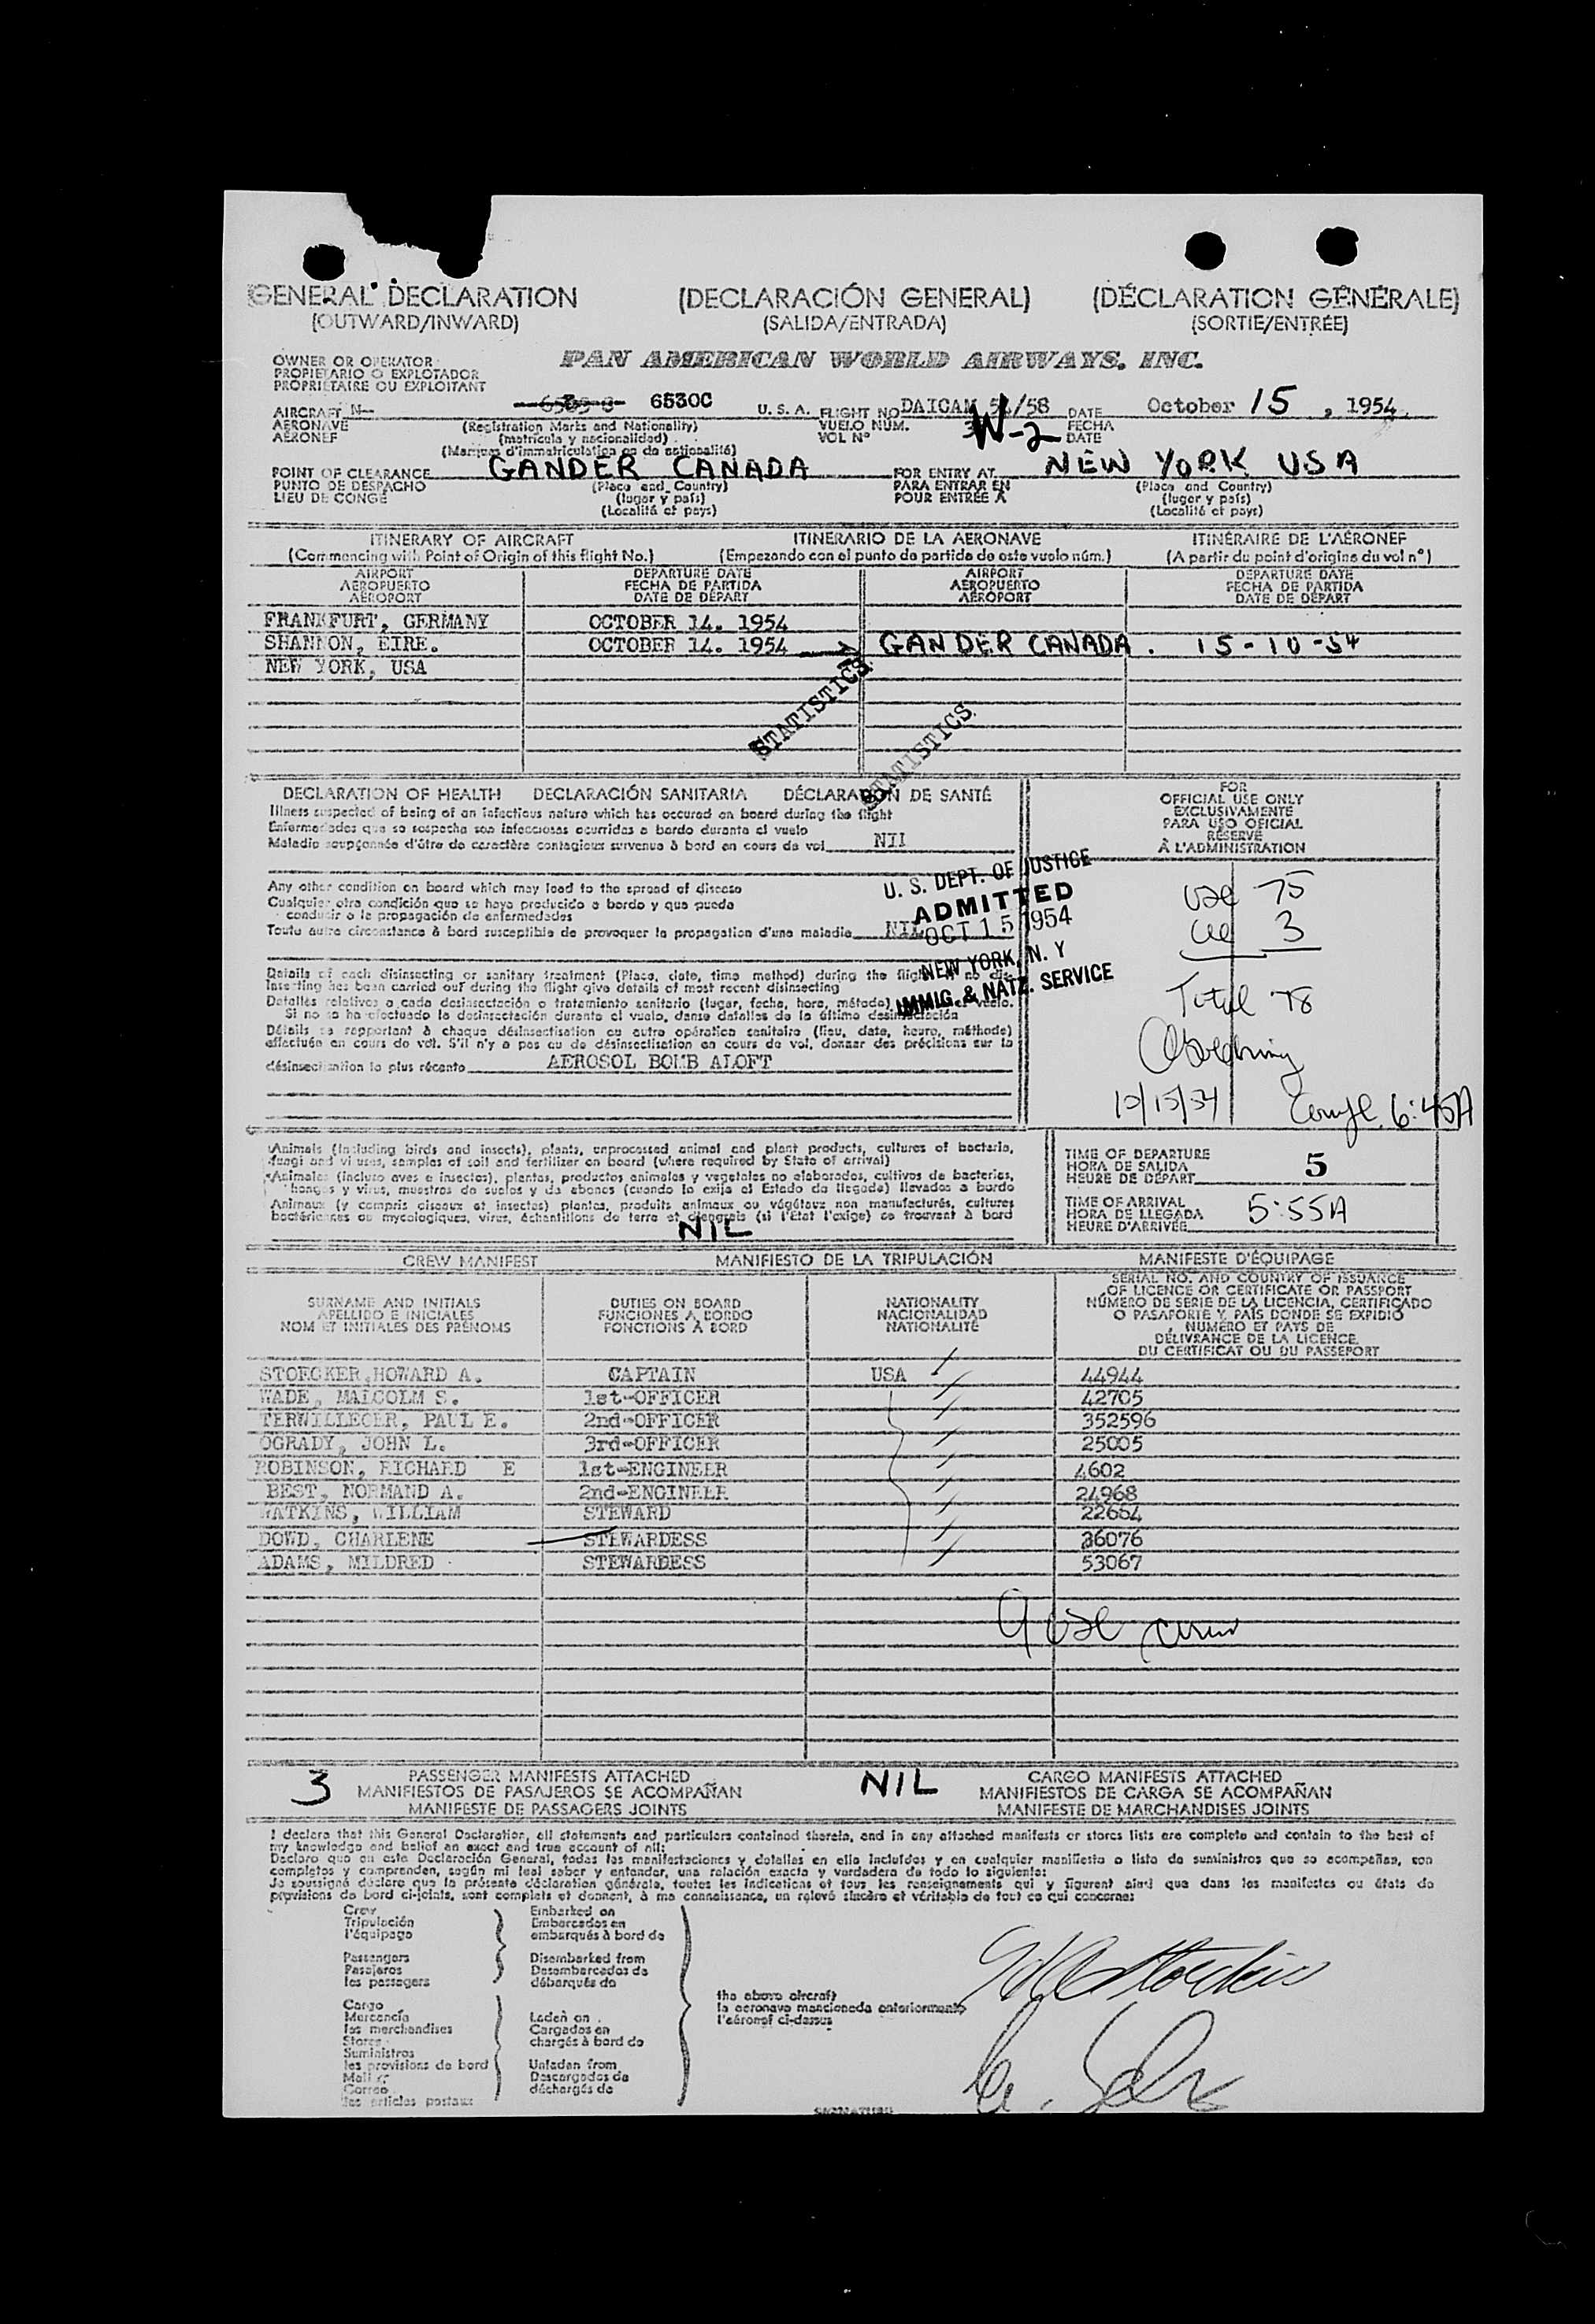 GENERAL DECLARATION (DECLARACIÓN GENERAL) (DÉCLARATION GÉNÉRALE)
(OUTWARD/INWARD) (SALIDA/ENTRADA) (SORTIE/ENTRÉE)
OWNER OR OPERATOR PAN AMERICAN WORLD AIRWAYS, INC.
PROPIETARIO O EXPLOTADOR
PROPRIÉTAIRE OU EXPLOITANT
AIRCRAFT N 6530C U. S. A. FLIGHT NO DAICAM /58 DATE October 15, 1954
AERONAVE (Registration Marks and Nationality) VUELO NUM. W-2 FECHA
AÉRONEF (matrícula y nacionalidad) VOL Nº DATE
(Marques d'immatriculation ou de nationalité)
POINT OF CLEARANCE GANDER CANADA FOR ENTRY AT NEW YORK USA
PUNTO DE DESPACHO (Place and Country) PARA ENTRAR EN (Place and Country)
LIEU DE CONGÉ (lugar y país) POUR ENTRÉE À (lugar y país)
(Localité et pays) (Localité et pays)
ITINERARY OF AIRCRAFT ITINERARIO DE LA AERONAVE ITINÉRAIRE DE L'AÉRONEF
(Commencing with Point of Origin of this flight No.) (Empezando con el punto de partida de este vuelo núm.) (A partir du point d'origine du vol nº)
AIRPORT DEPARTURE DATE AIRPORT DEPARTURE DATE
AEROPUERTO FECHA DE PARTIDA AEROPUERTO FECHA DE PARTIDA
AÉROPORT DATE DE DÉPART AÉROPORT DATE DE DÉPART
FRANKFURT, GERMANY OCTOBER 14. 1954
SHANNON, EIRE. OCTOBER 14. 1954 GANDER CANADA. 15-10-54
NEW YORK, USA
STATISTICS
STATISTICS
DECLARATION OF HEALTH DECLARACIÓN SANITARIA DÉCLARATION DE SANTÉ
Illness suspected of being of an infectious nature which has occured on board during the flight
Enfermedades que se sospecha son infecciosas ocurridas a bordo durante el vuelo
Maladie soupçonnée d'être de caractère contagieux survenue à bord en cours de vol NIL
FOR
OFFICIAL USE ONLY
EXCLUSIVAMENTE
PARA USO OFICIAL
RÉSERVÉ
À L'ADMINISTRATION
Any other condition on board which may lead to the spread of disease
Cualquier otra condición que se haya producido a bordo y que pueda
conducir a la propagación de enfermedades
Toute autre circonstance à bord susceptible de provoquer la propagation d'une maladie NIL
U. S. DEPT. OF JUSTICE
ADMITTED
OCT 15 1954
NEW YORK, N. Y
IMMIG. & NATZ. SERVICE
USC 75
3
Total 78
10/15/54 6:45A
Details of each disinsecting or sanitary treatment (Place, date, time method) during the flight. If no dis-
insecting has been carried out during the flight give details of most recent disinsecting
Detalles relativos a cada desinsectación o tratamiento sanitario (lugar, fecha, hora, método) vuelo.
Si no se ha efectuado la desinsectación durante el vuelo, danse detalles de la última desinsectación
Détails se rapportant à chaque désinsectisation ou autre opération sanitaire (lieu, date, heure, méthode)
effectuée en cours de vol. S'il n'y a pas eu de désinsectisation en cours de vol, donner des précisions sur la
désinsectisation la plus récente AEROSOL BOMB ALOFT
Animals (including birds and insects), plants, unprocessed animal and plant products, cultures of bacteria,
fungi and viruses, samples of soil and fertilizer on board (where required by State of arrival)
Animales (incluso aves e insectos), plantas, productos animales y vegetales no elaborados, cultivos de bacterias,
hongos y virus, muestras de suelos y de abonos (cuando lo exija el Estado de llegada) llevados a bordo
Animaux (y compris oiseaux et insectes) plantes, produits animaux ou végétaux non manufacturés, cultures
bactériennes ou mycologiques, virus, échantillons de terre et d'engrais (si l'État l'exige) se trouvant à bord
NIL
TIME OF DEPARTURE
HORA DE SALIDA 5
HEURE DE DÉPART
TIME OF ARRIVAL
HORA DE LLEGADA 5:55A
HEURE D'ARRIVÉE
CREW MANIFEST MANIFIESTO DE LA TRIPULACIÓN MANIFESTE D'ÉQUIPAGE
SURNAME AND INITIALS DUTIES ON BOARD NATIONALITY
APELLIDO E INICIALES FUNCIONES A BORDO NACIONALIDAD
NOM ET INITIALES DES PRÉNOMS FONCTIONS À BORD NATIONALITÉ
SERIAL NO. AND COUNTRY OF ISSUANCE
OF LICENCE OR CERTIFICATE OR PASSPORT
NÚMERO DE SERIE DE LA LICENCIA, CERTIFICADO
O PASAPORTE Y PAÍS DONDE SE EXPIDIÓ
NUMÉRO ET PAYS DE
DÉLIVRANCE DE LA LICENCE
DU CERTIFICAT OU DU PASSEPORT
STOECKER, HOWARD A. CAPTAIN USA 44944
WADE, MALCOLM S. 1st-OFFICER 42705
TERWILLEGER, PAUL E. 2nd-OFFICER 352596
OGRADY, JOHN L. 3rd-OFFICER 25005
ROBINSON, RICHARD E 1st-ENGINEER 4602
BEST, NORMAND A. 2nd-ENGINEER 24968
WATKINS, WILLIAM STEWARD 22664
DOWD, CHARLENE STEWARDESS 36076
ADAMS, MILDRED STEWARDESS 53067
9 USC crew
3 PASSENGER MANIFESTS ATTACHED NIL CARGO MANIFESTS ATTACHED
MANIFIESTOS DE PASAJEROS SE ACOMPAÑAN MANIFIESTOS DE CARGA SE ACOMPAÑAN
MANIFESTE DE PASSAGERS JOINTS MANIFESTE DE MARCHANDISES JOINTS
I declare that this General Declaration, all statements and particulars contained therein, and in any attached manifests or stores lists are complete and contain to the best of
my knowledge and belief an exact and true account of all:
Declaro que en esta Declaración General, todas las manifestaciones y detalles en ella incluídos y en cualquier manifiesto o lista de suministros que se acompañan, son
completos y comprenden, según mi leal saber y entender, una relación exacta y verdadera de todo lo siguiente:
Je soussigné déclare que la présente déclaration générale, toutes les indications et tous les renseignements qui y figurent ainsi que dans les manifestes ou états de
provisions de bord ci-joints, sont complets et donnent, à ma connaissance, un relevé sincère et véritable de tout ce qui concerne:
Crew Embarked on
Tripulación Embarcados en
l'équipage embarqués à bord de
Passengers Disembarked from
Pasajeros Desembarcados de
les passagers débarqués de
the above aircraft
la aeronave mencionada anteriormente
l'aéronef ci-dessus
Cargo
Mercancía Laden on
les merchandises Cargados en
Stores chargés à bord de
Suministros
les provisions de bord Unladen from
Mail Descargados de
Correo déchargés de
les articles postaux
SIGNATURE